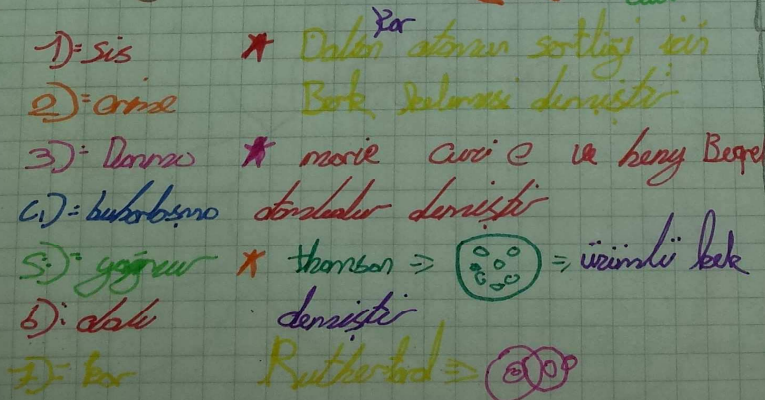 1)= sis
2)= erime
3)= Donma
4)= buharlaşma
5)= yağmur
6): dolu
7)= kar
kar
★ Dalton atomun sertliği için
Berk kelimesi demiştir
★ marie curi e ve heny Beqe
atomlar demiştir
★ thomson => => üzümlü kek
demiştir
Rutherford =>